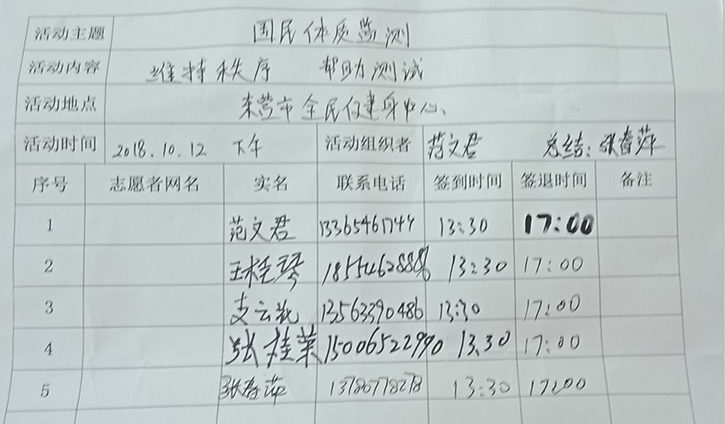 活动主题 国民体质监测
活动内容 维持秩序 帮助测试
活动地点 东营市全民健身中心
活动时间 2018.10.12 下午 活动组织者 范文君 总结:张春萍
序号 志愿者网名 实名 联系电话 签到时间 签退时间 备注
1 范文君 13365461744 13:30 17:00
2 13:30 17:00
3 13563390486 13:30 17:00
4 张桂荣 15006522990 13.30 17:00
5 张春萍 13:30 17:00